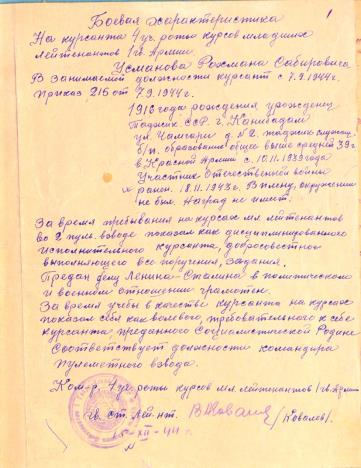 1
Боевая характеристика
На курсанта 4 уч. роты курсов младших
лейтенантов 1 гв. Армии.
Усманова Рахмана Сабировича
В занимаемой должности курсант с 7.9.1944г.
Приказ 215 от 7.9.1944г.
1916 года рождения уроженец
Таджик ССР г. Канибадам
д. № 2. таджик служащ.
б/п. образование общее выше средней 39г
в Красной Армии с 10.11.1939 года
Участник Отечественной войны
ранен. 18.11.1943г. В плену, окружении
не был. Наград не имеет.
За время пребывания на курсах мл. лейтенантов
во 2 пул. взводе показал как дисциплинированного
исполнительного курсанта, добросовестно
выполняющего все поручения, задания.
Предан делу Ленина-Сталина в политическом
и военном отношении грамотен.
За время учебы в качестве курсанта на курсах
показал себя как волевого, требовательного к себе
курсанта преданного Социалистической Родине
Соответствует должности командира
пулеметного взвода.
Ком-р. 4 уч. роты курсов мл. лейтенантов 1 гв. Армии
гв. ст. лей-нт. /Ковалев/
XII-44 г.